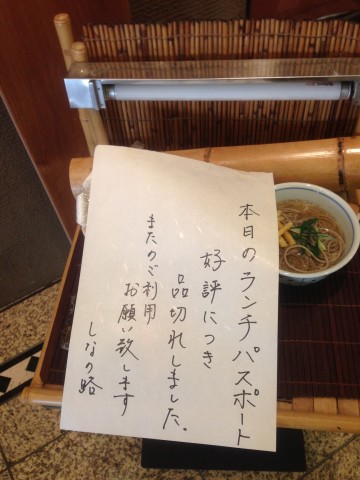 本日のランチパスポート
好評につき
品切れしました。
またのご利用
お願い致します
しなの路